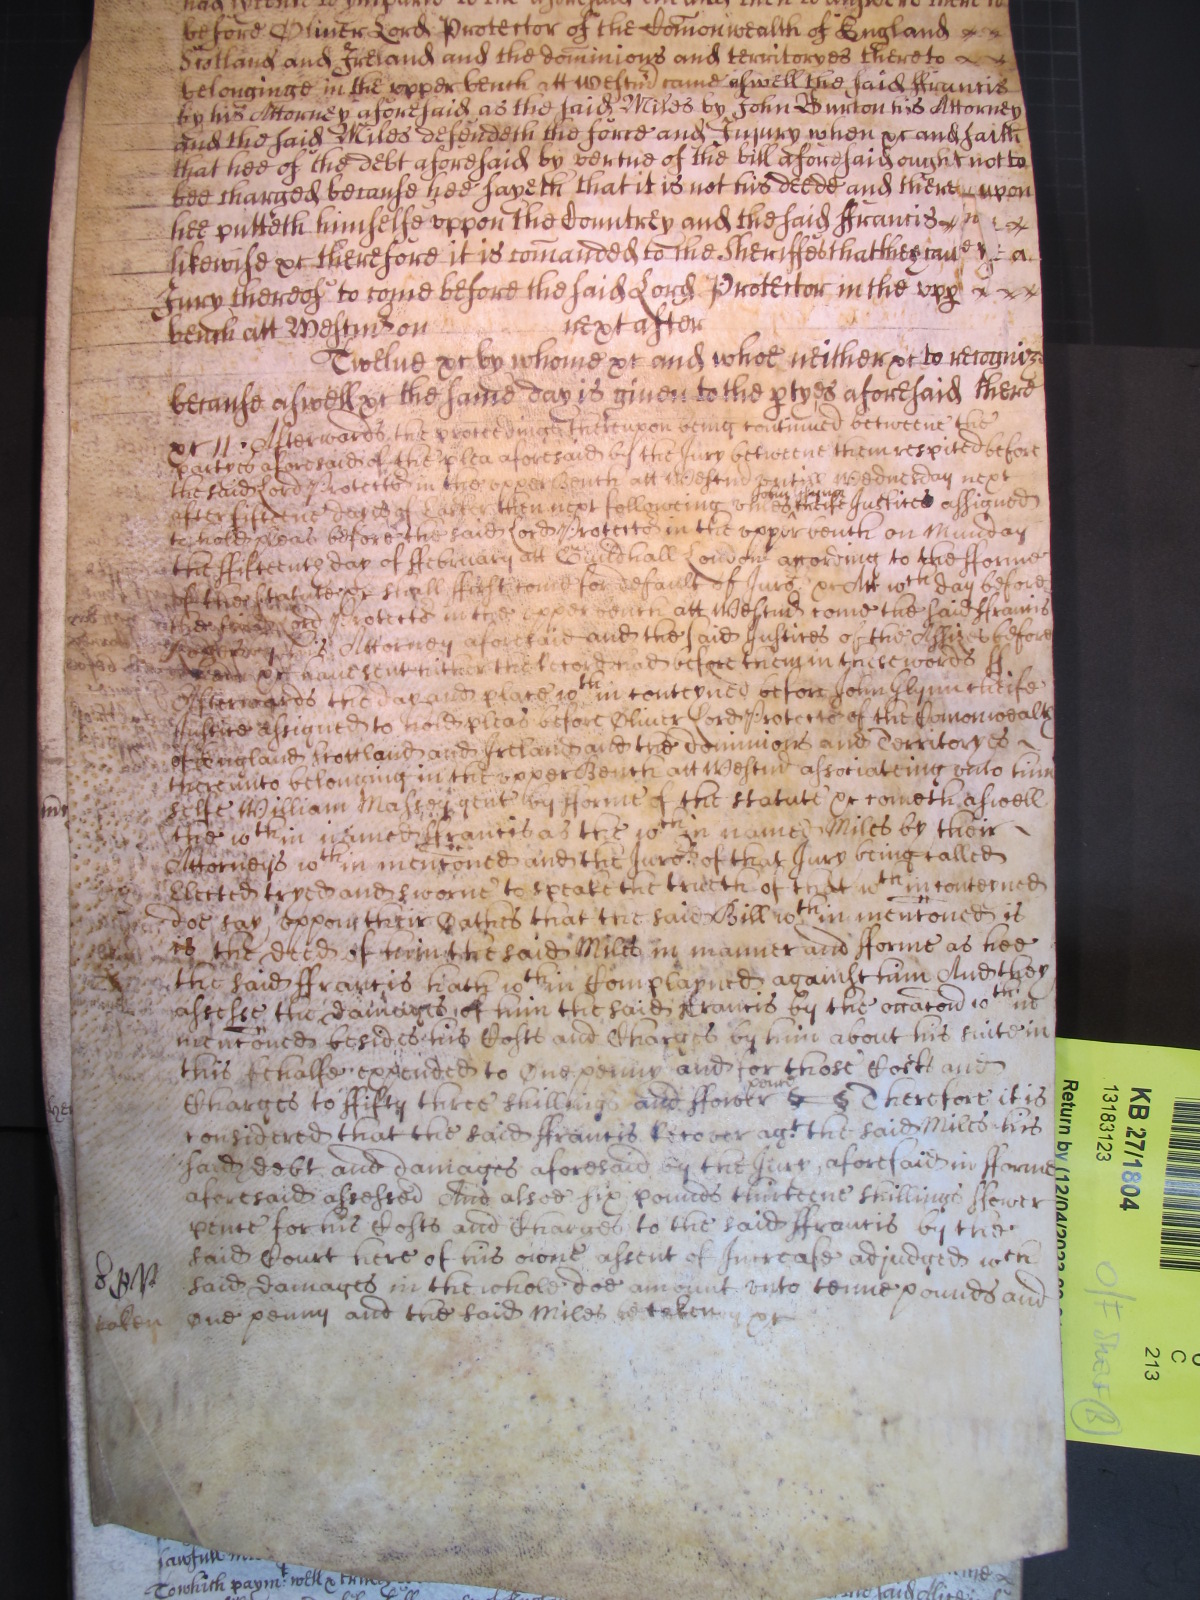 had lycence to imparle to the aforesaid and then to answere there to
before Oliver Lord Protector of the Comonwealth of England
Scotland and Ireland and the dominions and territoryes thereto
belonginge in the upper bench att Westmr came aswell the said ffrancis
by his Attorney aforesaid as the said Miles by John Burton his Attorney
and the said Miles defendeth the force and Injury when &c and saith
that hee of the debt aforesaid by vertue of the bill aforesaid ought not to
bee charged because hee sayeth that it is not his deede and there upon
hee putteth himselfe uppon the Countrey and the said ffrancis
likewise &c therefore it is comanded to the Sheriffes that they cause a
Jury thereof to come before the said Lord Protector in the upp
bench att Westmr on next after
Twelve &c by whome &c and whoe neither &c to recogniz
because aswell &c the same day is given to the ptyes aforesaid there
&c 11. Afterwards the proceedings thereupon being continued betweene the
partyes aforesaid of the plea aforesaid by the Jury betweene them respited before
the said Lord Protector in the upper Bench att Westmr untill Wednesday next
after fifteene dayes of Easter then next following unles John Glynn cheife Justice assigned
to hold pleas before the said Lord Protector in the upper bench on Munday
the ffifteenth day of ffebruary att Guildhall London according to the fforme
of the Statute &c shall ffirst come for default of Juro &c Att wch day before
the said Lord Protector in the upper bench att Westmr come the said ffrancis
by his Attorney aforesaid and the said Justices of the Assizes before
whom &c have sent hither the record had before them in these words ss
Afterwards the day and place wthin conteyned before John Glynn cheife
Justice assigned to hold pleas before Oliver Lord Protector of the Comonwealth
of England Scottland and Ireland and the Dominions and Territoryes
thereunto belonging in the upper Bench att Westmr associateing unto him
selfe William Massey gent by fforme of the statute &c cometh aswell
the wthin named ffrancis as the wthin named Miles by their
Attorneys wthin mencõned and the Juro of that Jury being called
Elected tryed and sworne to speake the trueth of that wthin conteened
doe say uppon their Oathes that the said Bill wthin mencõned is
is the deed of him the said Miles in manner and fforme as hee
the said ffrancis hath wthin Complayned against him And they
assesse the damages of him the said ffrancis by the occacõn wthin
mencõned besides his Costs and Charges by him about his suite in
this behalfe expended to One penny and for those Costs and
Charges to ffifty three shillings and ffower pence Therefore it is
considered that the said ffrancis Recover agt the said Miles his
said debt and damages aforesaid by the Jury aforesaid in fforme
aforesaid assessed And alsoe six pounds thirteene shillings ffower
pence for his Costs and Charges to the said ffrancis by the
said Court here of his owne assent of Increase adjudged wch
said damages in the whole doe amount unto tenne pounds and
One penny and the said Miles be taken &c
taken
lawfull
To which paymt well & truely
KB 27/1804
13183123
Return by (12/04/202
C
213